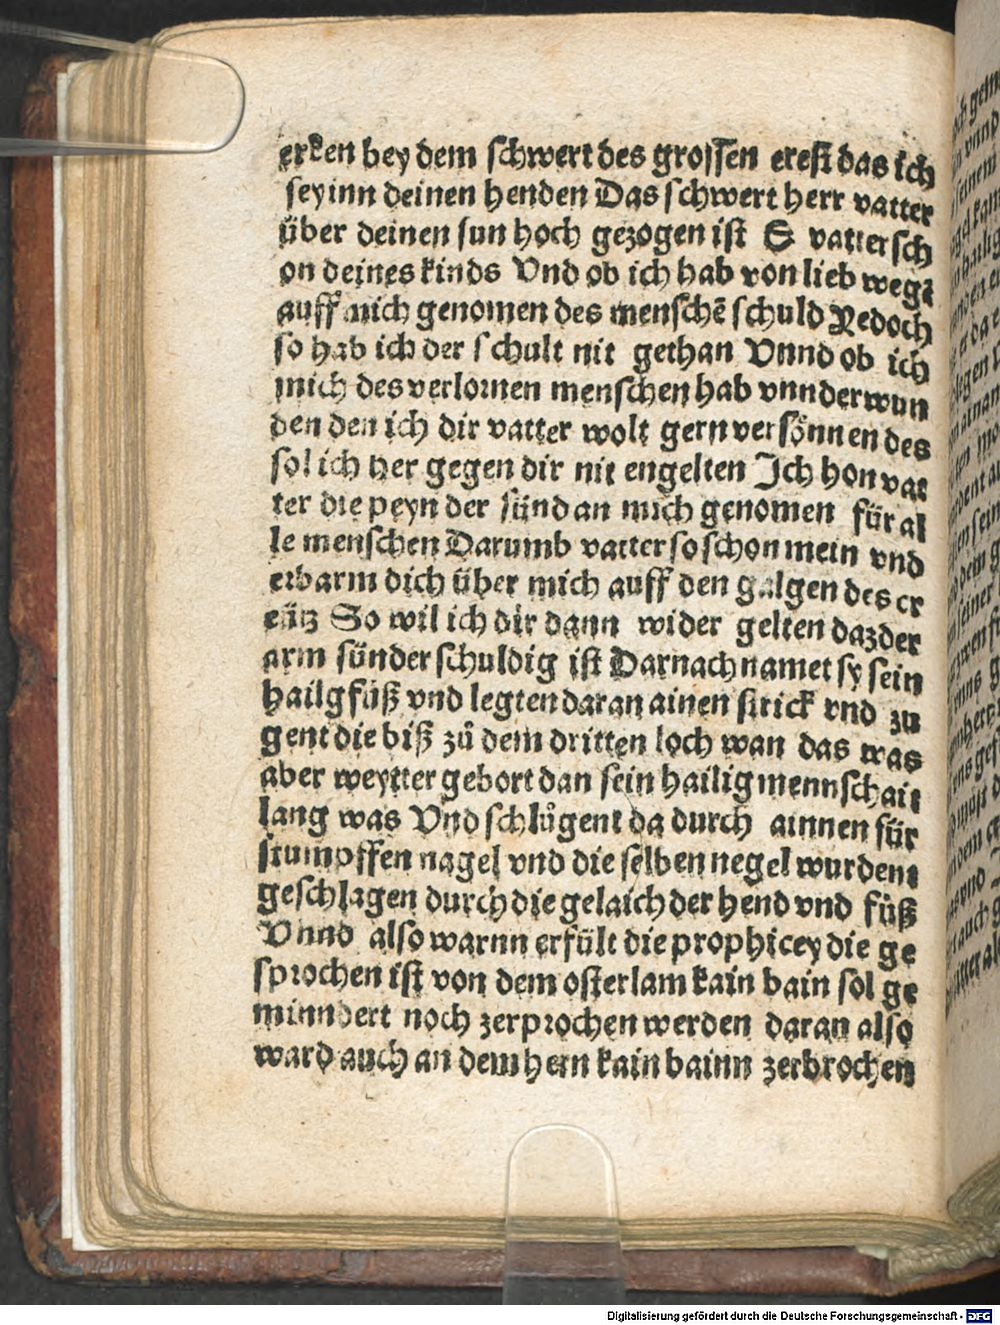 erken bey dem schwert des grossen erest das ich
sey inn deinen henden Das schwert herr vatter
über deinen sun hoch gezogen ist O vatter sch
on deines kinds Vnd ob ich hab von lieb wegē
auff mich genomen des menschē schuld Yedoch
so hab ich der schult nit gethan Vnnd ob ich
mich des verlornen menschen hab vnnderwun
den den ich dir vatter wolt gern versönnen des
sol ich her gegen dir nit engelten Ich hon vat
ter die peyn der sünd an mich genomen für al
le menschen Darumb vatter so schon mein vnd
erbarm dich über mich auff den galgen des cr
eütz So wil ich dir dann wider gelten daz der
arm sünder schuldig ist Darnach namet sy sein
hailg füß vnd legten daran ainen strick vnd zu
gent die biß zů dem dritten loch wan das was
aber weytter gebort dan sein hailig mennschait
lang was Vnd schlůgent da durch ainnen für
stumpffen nagel vnd die selben negel wurdent
geschlagen durch die gelaich der hend vnd füß
Vnnd also warnn erfült die prophicey die ge
sprochen ist von dem osterlam kain bain sol ge
minndert noch zerprochen werden daran also
ward auch an dem hern kain bainn zerbrochen
Digitalisierung gefördert durch die Deutsche Forschungsgemeinschaft - DFG